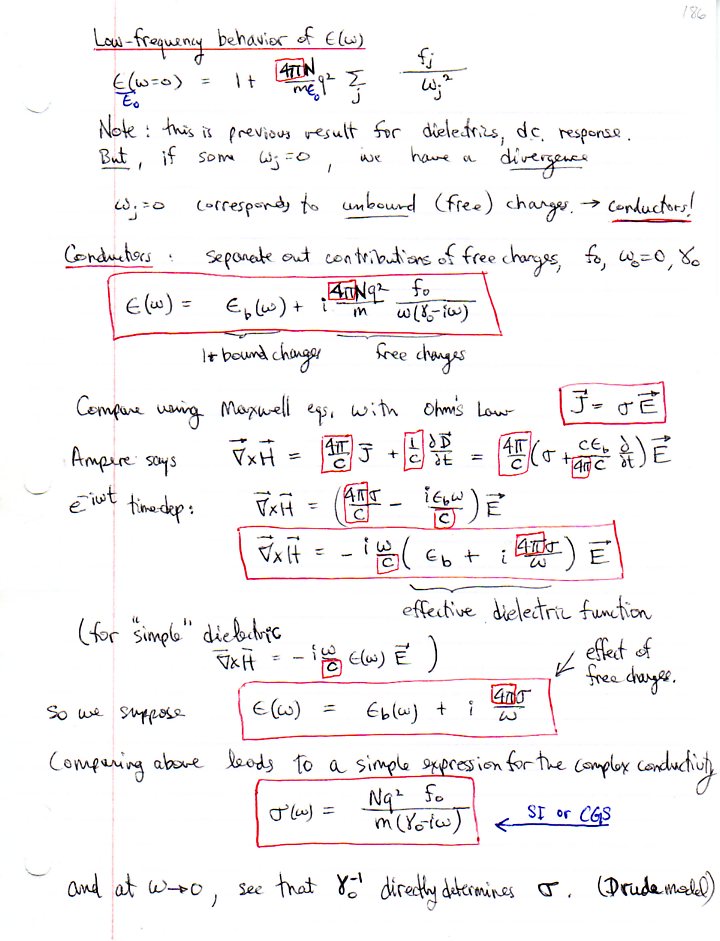 186
Low-frequency behavior of ε(ω)
ε(ω=0)/ε₀ = 1 + 4πN/mε₀ q² Σ_j f_j/ω_j²
Note: this is previous result for dielectrics, d.c. response.
But, if some ω_j=0, we have a divergence
ω_j=0 corresponds to unbound (free) charges. → conductors!
Conductors: separate out contributions of free charges, f₀, ω₀=0, γ₀
ε(ω) = ε_b(ω) + i 4πNq²/m f₀/ω(γ₀-iω)
1+bound charges free charges
Compare using Maxwell eqs. with Ohm's Law J⃗ = σE⃗
Ampere says ∇⃗×H⃗ = 4π/c J⃗ + 1/c ∂D⃗/∂t = 4π/c (σ + cε_b/4πc ∂/∂t) E⃗
e^-iωt time dep: ∇⃗×H⃗ = (4πσ/c - iε_bω/c) E⃗
∇⃗×H⃗ = -i ω/c (ε_b + i 4πσ/ω) E⃗
effective dielectric function
(for "simple" dielectric
∇⃗×H⃗ = -i ω/c ε(ω) E⃗ )
effect of
free charges.
So we suppose ε(ω) = ε_b(ω) + i 4πσ/ω
Comparing above leads to a simple expression for the complex conductivity
σ(ω) = Nq² f₀/m(γ₀-iω) ← SI or CGS
and at ω→0, see that γ₀⁻¹ directly determines σ. (Drude model)